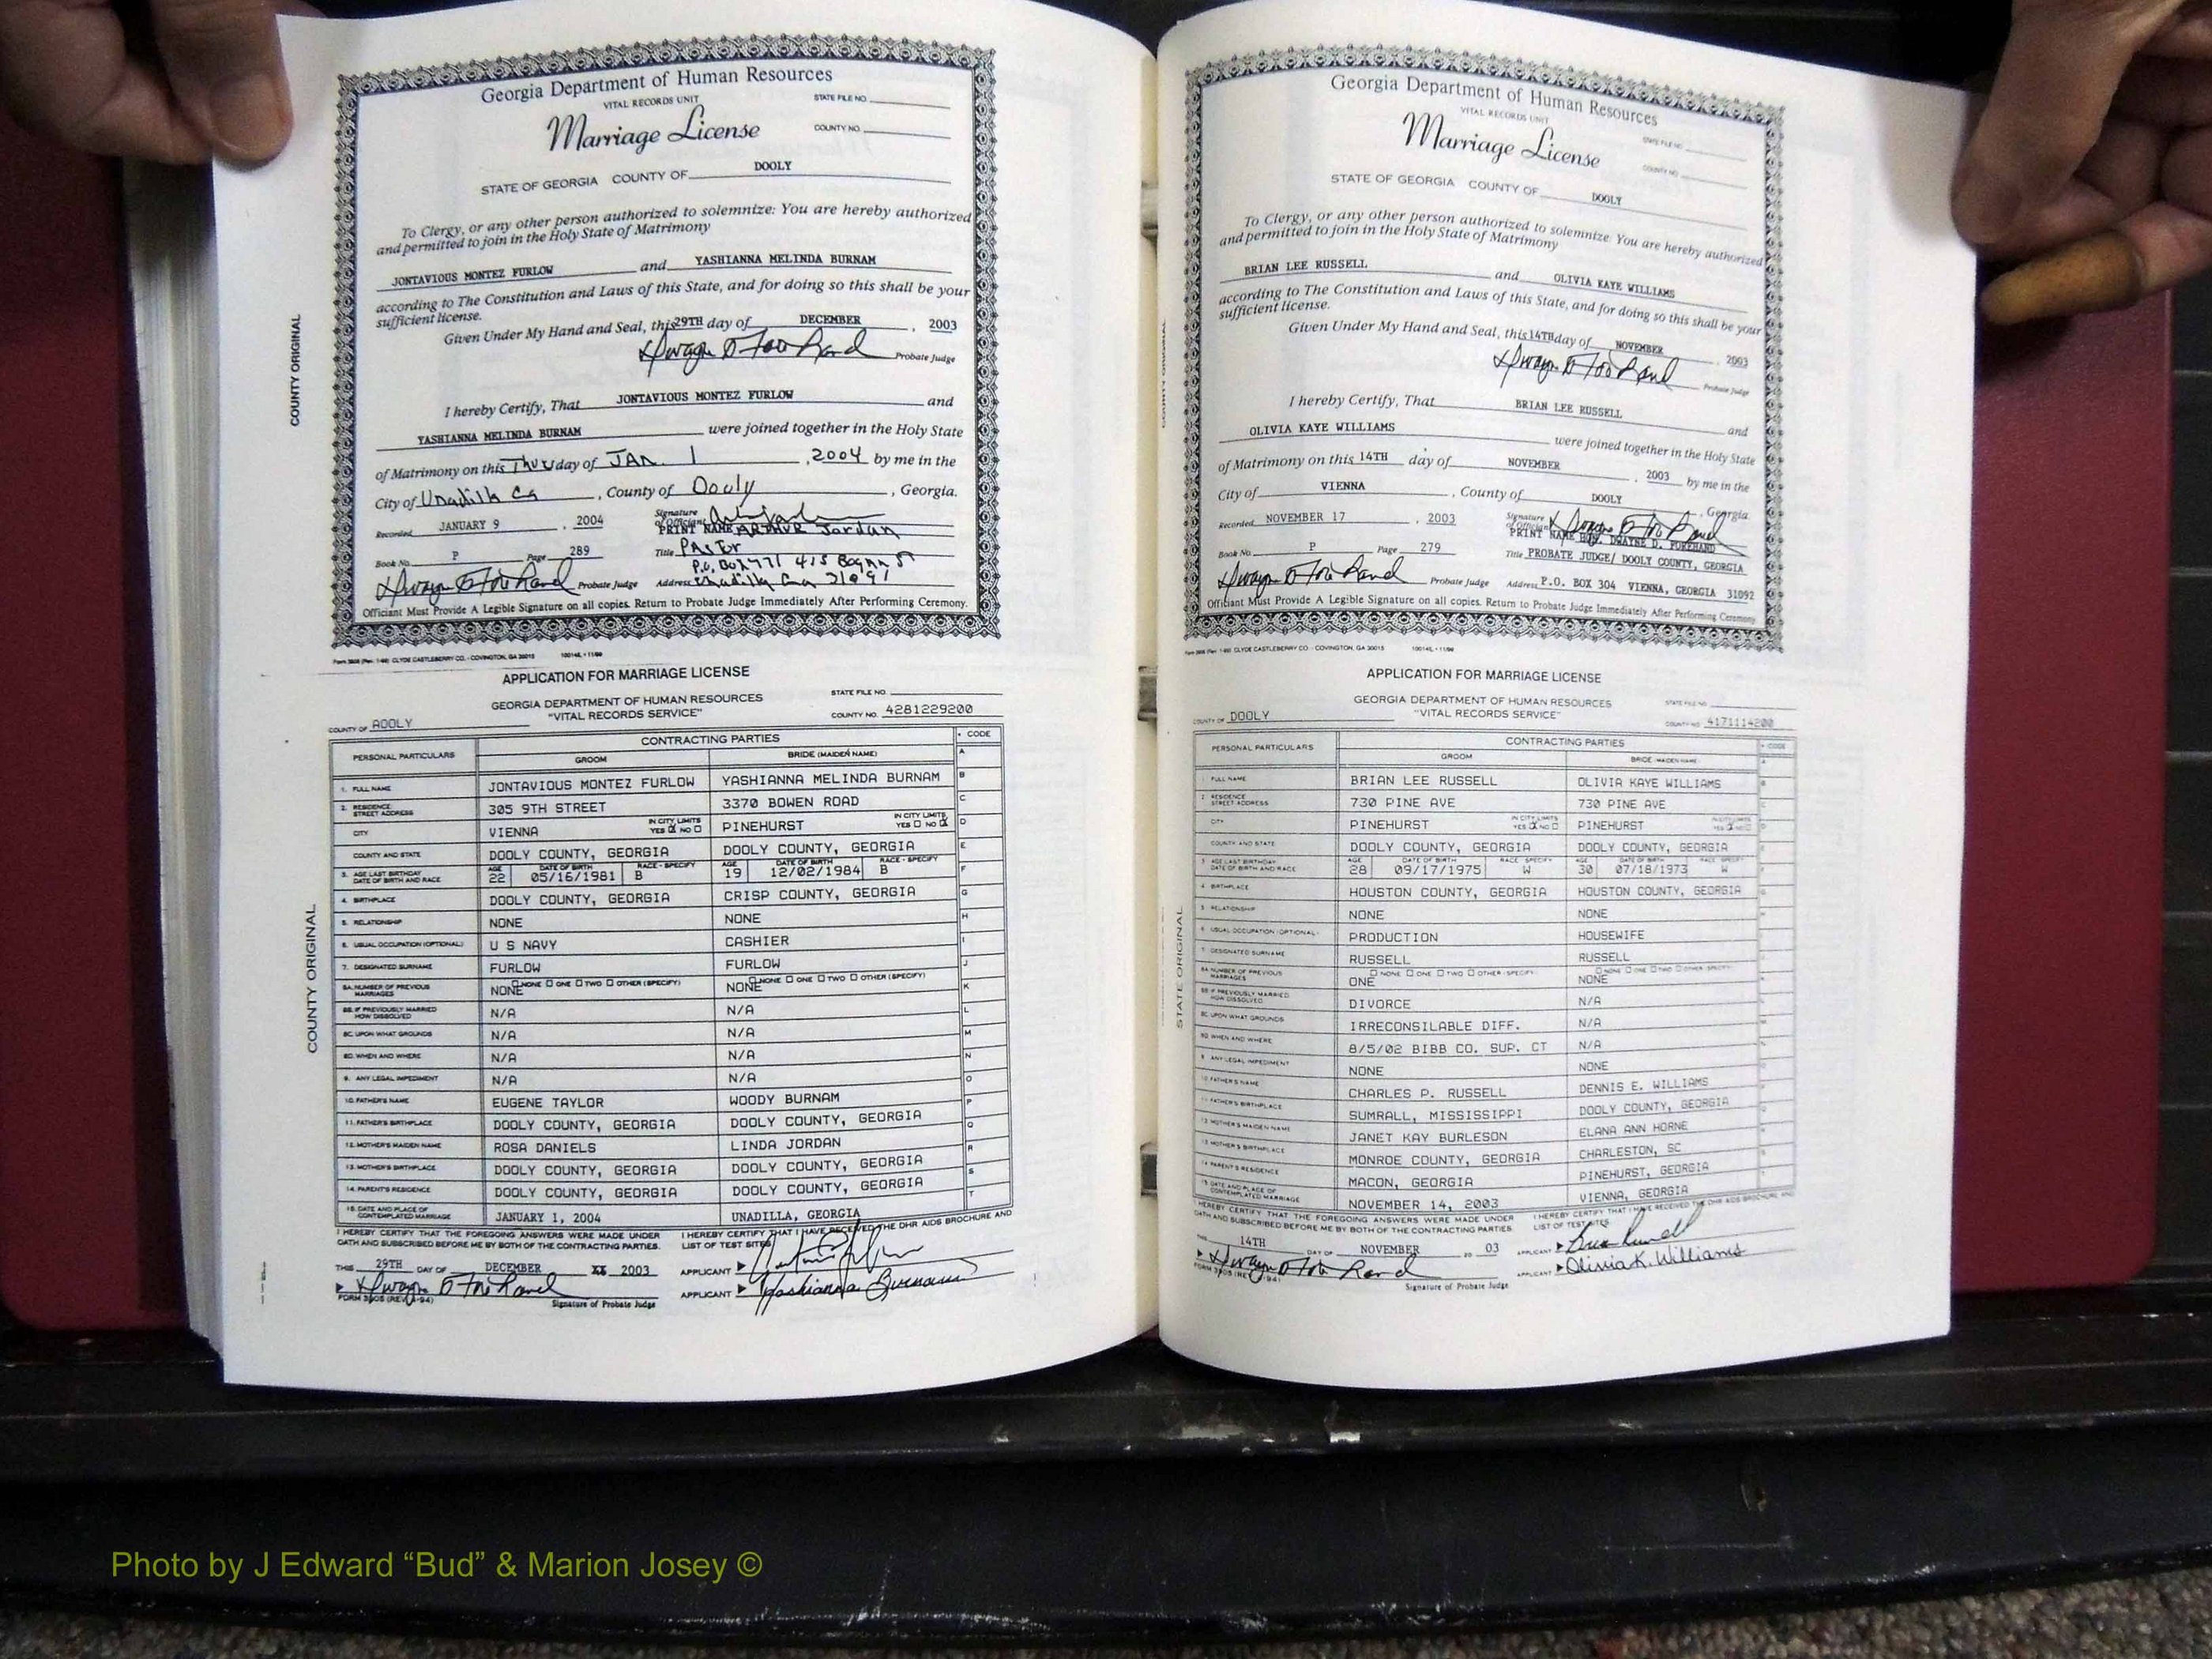 Georgia Department of Human Resources
VITAL RECORDS UNIT
STATE FILE NO.
Marriage License
COUNTY NO.
STATE OF GEORGIA COUNTY OF DOOLY
To Clergy, or any other person authorized to solemnize: You are hereby authorized
and permitted to join in the Holy State of Matrimony
JONTAVIOUS MONTEZ FURLOW and YASHIANNA MELINDA BURNAM
according to The Constitution and Laws of this State, and for doing so this shall be your
sufficient license.
Given Under My Hand and Seal, this 29TH day of DECEMBER, 2003
Probate Judge
I hereby Certify, That JONTAVIOUS MONTEZ FURLOW and
YASHIANNA MELINDA BURNAM were joined together in the Holy State
of Matrimony on this Thur day of JAN. 1, 2004 by me in the
City of Unadilla Ga, County of Dooly, Georgia.
Recorded JANUARY 9, 2004
Signature of Official
PRINT NAME ARTHUR Jordan
Book No. P Page 289
Title PASTOR
P.O. Box 771 415 St
Probate Judge Address Unadilla Ga 31091
Officiant Must Provide A Legible Signature on all copies. Return to Probate Judge Immediately After Performing Ceremony.
COUNTY ORIGINAL
Form 3908 (Rev. 1-94) CLYDE CASTLEBERRY CO. - COVINGTON, GA 30015 10014L • 11/99
APPLICATION FOR MARRIAGE LICENSE
GEORGIA DEPARTMENT OF HUMAN RESOURCES
"VITAL RECORDS SERVICE"
STATE FILE NO.
COUNTY OF DOOLY
COUNTY NO. 4281229200
PERSONAL PARTICULARS
CONTRACTING PARTIES
CODE
GROOM
BRIDE (MAIDEN NAME)
A
1. FULL NAME JONTAVIOUS MONTEZ FURLOW YASHIANNA MELINDA BURNAM B
2. RESIDENCE STREET ADDRESS 305 9TH STREET 3370 BOWEN ROAD C
CITY VIENNA IN CITY LIMITS YES ☒ NO ☐ PINEHURST IN CITY LIMITS YES ☐ NO ☒ D
COUNTY AND STATE DOOLY COUNTY, GEORGIA DOOLY COUNTY, GEORGIA E
3. AGE LAST BIRTHDAY DATE OF BIRTH AND RACE AGE 22 DATE OF BIRTH 05/16/1981 RACE - SPECIFY B AGE 19 DATE OF BIRTH 12/02/1984 RACE - SPECIFY B F
4. BIRTHPLACE DOOLY COUNTY, GEORGIA CRISP COUNTY, GEORGIA G
5. RELATIONSHIP NONE NONE H
6. USUAL OCCUPATION (OPTIONAL) U S NAVY CASHIER I
7. DESIGNATED SURNAME FURLOW FURLOW J
8A. NUMBER OF PREVIOUS MARRIAGES NONE ☐ NONE ☐ ONE ☐ TWO ☐ OTHER (SPECIFY) NONE ☐ NONE ☐ ONE ☐ TWO ☐ OTHER (SPECIFY) K
8B. IF PREVIOUSLY MARRIED HOW DISSOLVED N/A N/A L
8C. UPON WHAT GROUNDS N/A N/A M
8D. WHEN AND WHERE N/A N/A N
9. ANY LEGAL IMPEDIMENT N/A N/A O
10. FATHER'S NAME EUGENE TAYLOR WOODY BURNAM P
11. FATHER'S BIRTHPLACE DOOLY COUNTY, GEORGIA DOOLY COUNTY, GEORGIA Q
12. MOTHER'S MAIDEN NAME ROSA DANIELS LINDA JORDAN R
13. MOTHER'S BIRTHPLACE DOOLY COUNTY, GEORGIA DOOLY COUNTY, GEORGIA S
14. PARENT'S RESIDENCE DOOLY COUNTY, GEORGIA DOOLY COUNTY, GEORGIA T
15. DATE AND PLACE OF CONTEMPLATED MARRIAGE JANUARY 1, 2004 UNADILLA, GEORGIA
I HEREBY CERTIFY THAT THE FOREGOING ANSWERS WERE MADE UNDER
OATH AND SUBSCRIBED BEFORE ME BY BOTH OF THE CONTRACTING PARTIES.
I HEREBY CERTIFY THAT I HAVE RECEIVED THE DHR AIDS BROCHURE AND
LIST OF TEST SITES
THIS 29TH DAY OF DECEMBER 2003
APPLICANT
APPLICANT Yashianna Burnam
FORM 3905 (REV. 1-94) Signature of Probate Judge
COUNTY ORIGINAL
Georgia Department of Human Resources
VITAL RECORDS UNIT
STATE FILE NO.
Marriage License
COUNTY NO.
STATE OF GEORGIA COUNTY OF DOOLY
To Clergy, or any other person authorized to solemnize: You are hereby authorized
and permitted to join in the Holy State of Matrimony
BRIAN LEE RUSSELL and OLIVIA KAYE WILLIAMS
according to The Constitution and Laws of this State, and for doing so this shall be your
sufficient license.
Given Under My Hand and Seal, this 14TH day of NOVEMBER, 2003
Probate Judge
I hereby Certify, That BRIAN LEE RUSSELL and
OLIVIA KAYE WILLIAMS were joined together in the Holy State
of Matrimony on this 14TH day of NOVEMBER, 2003 by me in the
City of VIENNA, County of DOOLY, Georgia
Recorded NOVEMBER 17, 2003
Signature of Official
PRINT NAME HON. DWAYNE D. FOREHAND
Book No. P Page 279
Title PROBATE JUDGE/ DOOLY COUNTY, GEORGIA
Probate Judge Address P.O. BOX 304 VIENNA, GEORGIA 31092
Officiant Must Provide A Legible Signature on all copies. Return to Probate Judge Immediately After Performing Ceremony
COUNTY ORIGINAL
Form 3908 (Rev. 1-94) CLYDE CASTLEBERRY CO. - COVINGTON, GA 30015 10014L • 11/99
APPLICATION FOR MARRIAGE LICENSE
GEORGIA DEPARTMENT OF HUMAN RESOURCES
"VITAL RECORDS SERVICE"
STATE FILE NO.
COUNTY OF DOOLY
COUNTY NO. 4171114200
PERSONAL PARTICULARS
CONTRACTING PARTIES
CODE
GROOM
BRIDE (MAIDEN NAME)
1. FULL NAME BRIAN LEE RUSSELL OLIVIA KAYE WILLIAMS
2. RESIDENCE STREET ADDRESS 730 PINE AVE 730 PINE AVE
CITY PINEHURST IN CITY LIMITS YES ☒ NO ☐ PINEHURST IN CITY LIMITS YES ☒ NO ☐
COUNTY AND STATE DOOLY COUNTY, GEORGIA DOOLY COUNTY, GEORGIA
3. AGE LAST BIRTHDAY DATE OF BIRTH AND RACE AGE 28 DATE OF BIRTH 09/17/1975 RACE SPECIFY W AGE 30 DATE OF BIRTH 07/18/1973 RACE SPECIFY W
4. BIRTHPLACE HOUSTON COUNTY, GEORGIA HOUSTON COUNTY, GEORGIA
5. RELATIONSHIP NONE NONE
6. USUAL OCCUPATION (OPTIONAL) PRODUCTION HOUSEWIFE
7. DESIGNATED SURNAME RUSSELL RUSSELL
8A. NUMBER OF PREVIOUS MARRIAGES ONE ☐ NONE ☐ ONE ☐ TWO ☐ OTHER (SPECIFY) NONE ☐ NONE ☐ ONE ☐ TWO ☐ OTHER (SPECIFY)
8B. IF PREVIOUSLY MARRIED HOW DISSOLVED DIVORCE N/A
8C. UPON WHAT GROUNDS IRRECONSILABLE DIFF. N/A
8D. WHEN AND WHERE 8/5/02 BIBB CO. SUP. CT N/A
9. ANY LEGAL IMPEDIMENT NONE NONE
10. FATHER'S NAME CHARLES P. RUSSELL DENNIS E. WILLIAMS
11. FATHER'S BIRTHPLACE SUMRALL, MISSISSIPPI DOOLY COUNTY, GEORGIA
12. MOTHER'S MAIDEN NAME JANET KAY BURLESON ELANA ANN HORNE
13. MOTHER'S BIRTHPLACE MONROE COUNTY, GEORGIA CHARLESTON, SC
14. PARENT'S RESIDENCE MACON, GEORGIA PINEHURST, GEORGIA
15. DATE AND PLACE OF CONTEMPLATED MARRIAGE NOVEMBER 14, 2003 VIENNA, GEORGIA
I HEREBY CERTIFY THAT THE FOREGOING ANSWERS WERE MADE UNDER
OATH AND SUBSCRIBED BEFORE ME BY BOTH OF THE CONTRACTING PARTIES.
I HEREBY CERTIFY THAT I HAVE RECEIVED THE DHR AIDS BROCHURE AND
LIST OF TEST SITES
THIS 14TH DAY OF NOVEMBER 20 03
APPLICANT
APPLICANT Olivia K. Williams
FORM 3905 (REV. 1-94) Signature of Probate Judge
STATE ORIGINAL
Photo by J Edward “Bud” & Marion Josey ©